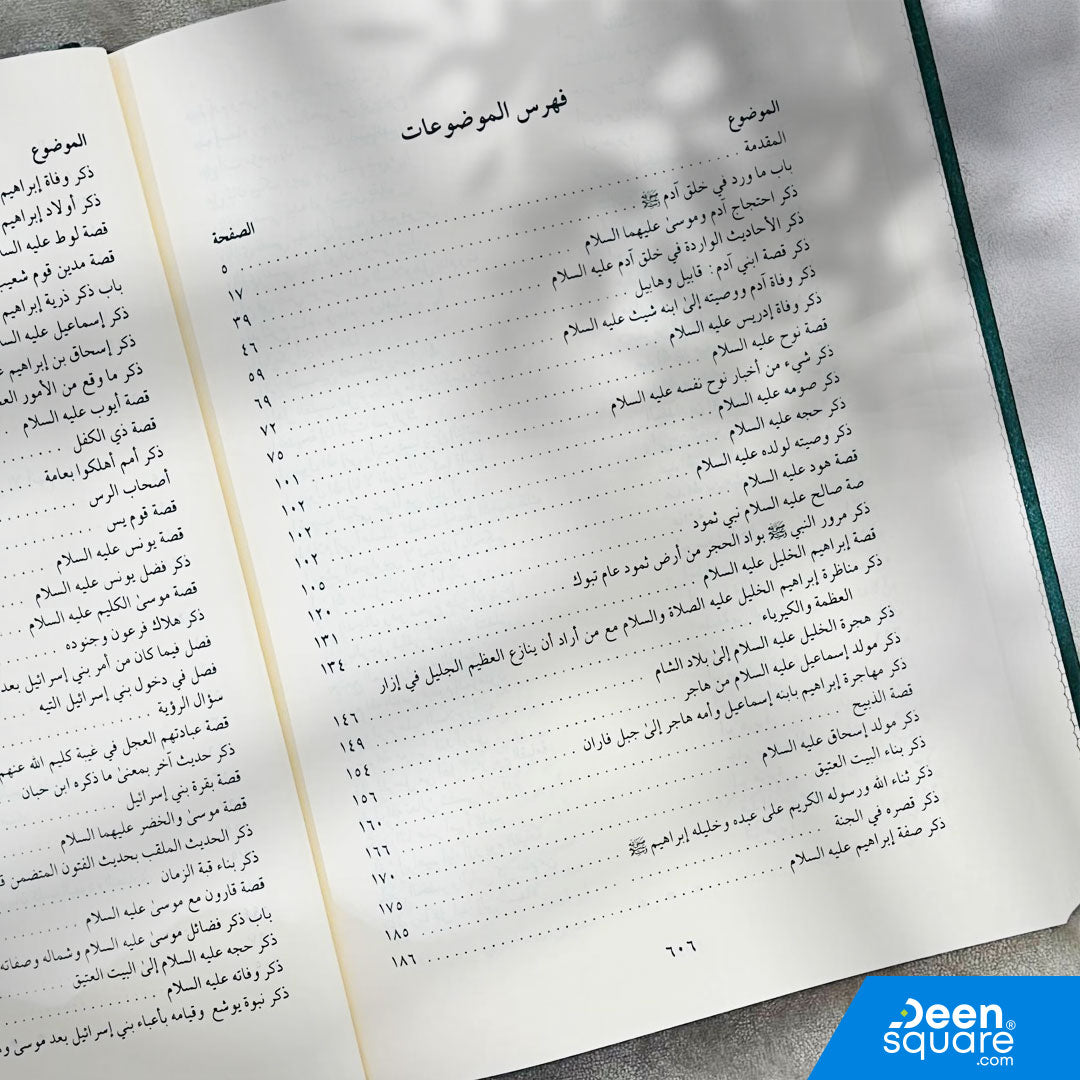 فهرس الموضوعات
الموضوع الصفحة
المقدمة ٥
باب ما ورد في خلق آدم ﷺ ١٧
ذكر احتجاج آدم وموسىٰ عليهما السلام ٣٩
ذكر الأحاديث الواردة في خلق آدم عليه السلام ٤٦
ذكر قصة ابني آدم: قابيل وهابيل ٥٩
ذكر وفاة آدم ووصيته إلىٰ ابنه شيث عليه السلام ٦٩
ذكر وفاة إدريس عليه السلام ٧٢
قصة نوح عليه السلام ٧٥
ذكر شيء من أخبار نوح نفسه عليه السلام ١٠١
ذكر صومه عليه السلام ١٠٢
ذكر حجه عليه السلام ١٠٢
ذكر وصيته لولده عليه السلام ١٠٢
قصة هود عليه السلام ١٠٥
صة صالح عليه السلام نبي ثمود ١٢٠
ذكر مرور النبي ﷺ بواد الحجر من أرض ثمود عام تبوك ١٣١
قصة إبراهيم الخليل عليه السلام ١٣٤
ذكر مناظرة إبراهيم الخليل عليه الصلاة والسلام مع من أراد أن ينازع العظيم الجليل في إزار
العظمة والكبرياء ١٤٦
ذكر هجرة الخليل عليه السلام إلىٰ بلاد الشام ١٤٩
ذكر مولد إسماعيل عليه السلام من هاجر ١٥٤
ذكر مهاجرة إبراهيم بابنه إسماعيل وأمه هاجر إلىٰ جبل فاران ١٥٦
قصة الذبيح ١٦٠
ذكر مولد إسحاق عليه السلام ١٦٦
ذكر بناء البيت العتيق ١٧٠
ذكر ثناء الله ورسوله الكريم علىٰ عبده وخليله إبراهيم ﷺ ١٧٥
ذكر قصره في الجنة ١٨٥
ذكر صفة إبراهيم عليه السلام ١٨٦
٦٠٦
الموضوع
ذكر وفاة إبراهيم
ذكر أولاد إبراهيم
قصة لوط عليه السلا
قصة مدين قوم شعيب
باب ذكر ذرية إبراهيم
ذكر إسماعيل عليه السلا
ذكر إسحاق بن إبراهيم
ذكر ما وقع من الأمور العج
قصة أيوب عليه السلام
قصة ذي الكفل
ذكر أمم أهلكوا بعامة
أصحاب الرس
قصة قوم يس
قصة يونس عليه السلام
ذكر فضل يونس عليه السلام
قصة موسىٰ الكليم عليه السلام
ذكر هلاك فرعون وجنوده
فصل فيما كان من أمر بني إسرائيل بعد
فصل في دخول بني إسرائيل التيه
سؤال الرؤية
قصة عبادتهم العجل في غيبة كليم الله عنهم
ذكر حديث آخر بمعنىٰ ما ذكره ابن حبان
قصة بقرة بني إسرائيل
قصة موسىٰ والخضر عليهما السلام
ذكر الحديث الملقب بحديث الفتون المتضمن
ذكر بناء قبة الزمان
قصة قارون مع موسىٰ عليه السلام
باب ذكر فضائل موسىٰ عليه السلام وشمائله وصفاته
ذكر حجه عليه السلام إلىٰ البيت العتيق
ذكر وفاته عليه السلام
ذكر نبوة يوشع وقيامه بأعباء بني إسرائيل بعد موسىٰ
Deen
square®
.com